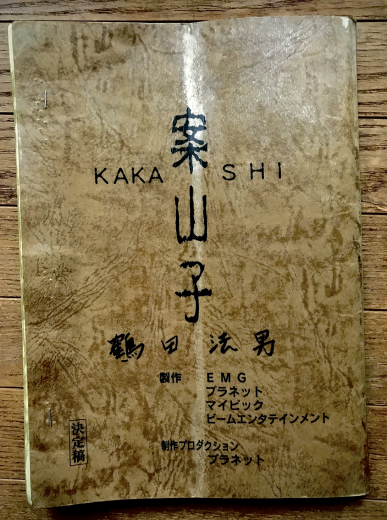 案山子
KAKASHI
鶴田法男
製作 EMG
プラネット
マイピック
ビームエンタテインメント
制作プロダクション
プラネット
決定稿